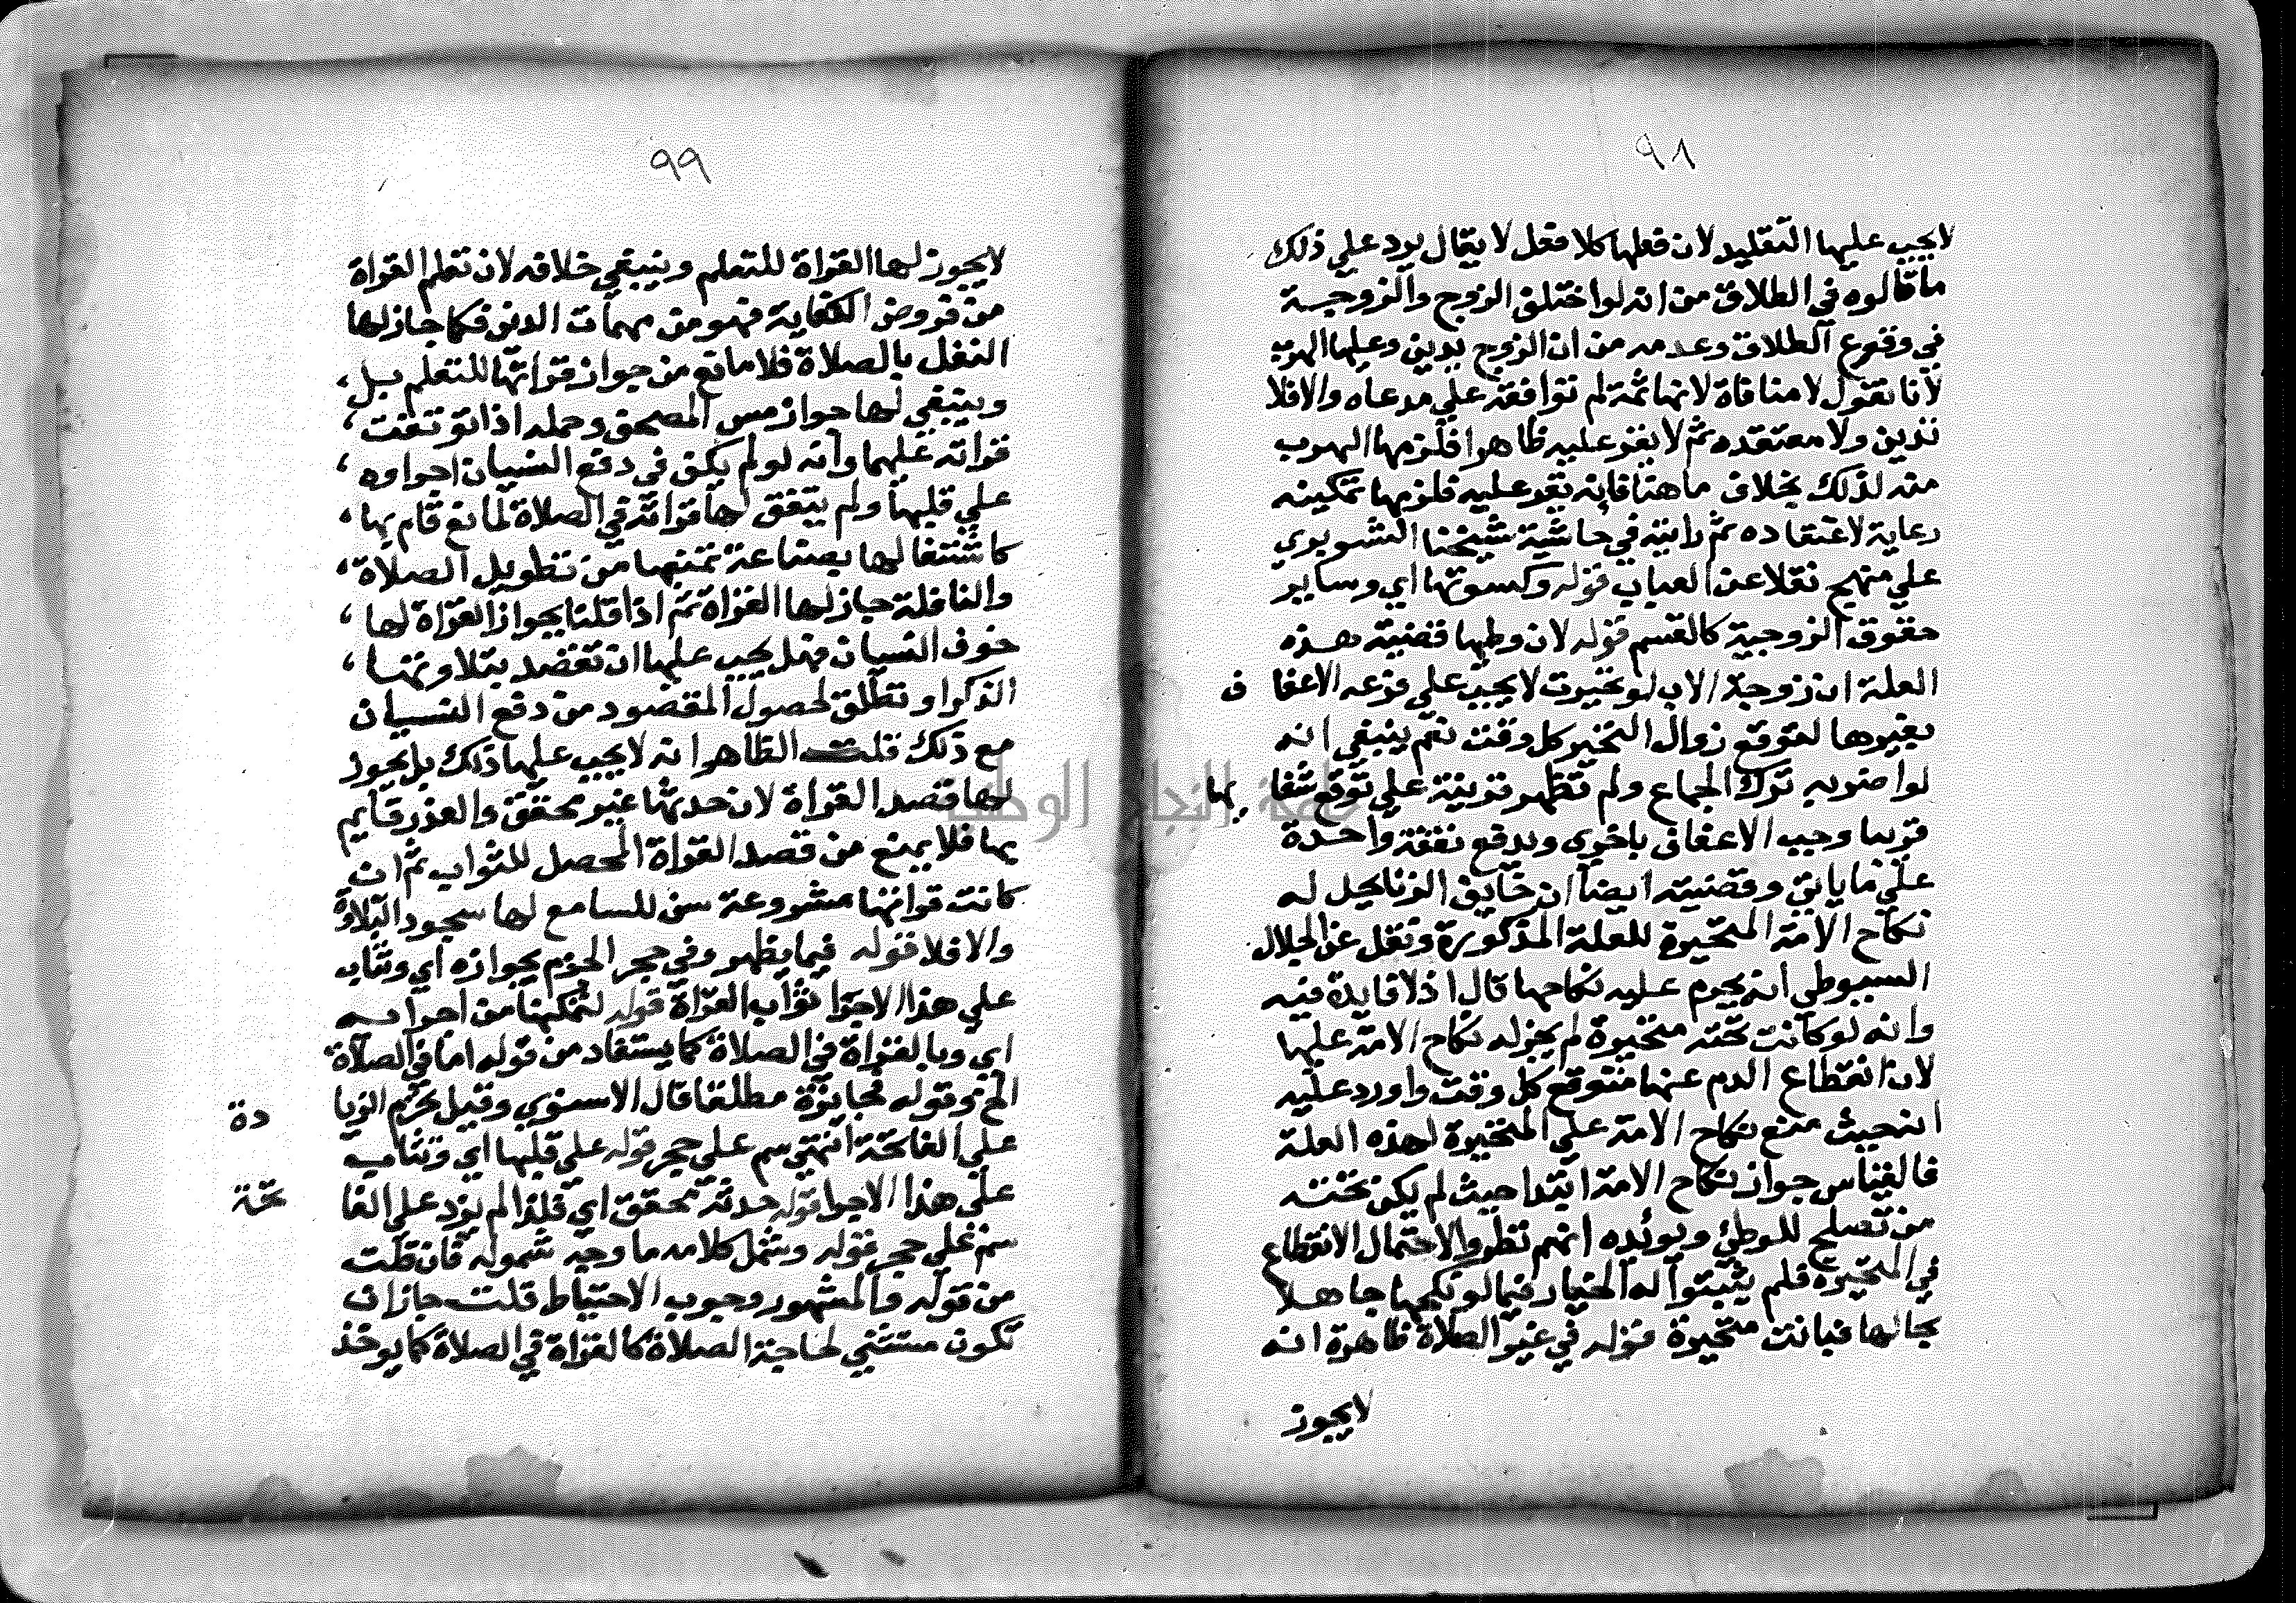 ٩٨
لا يجب عليها التقليد لان فعلها كلا فعل لا يقال يرد علي ذلك
ما قالوه في الطلاق من انه لو اختلف الزوج والزوجة
في وقوع الطلاق وعدمه من ان الزوج يدين وعليها الهرب
لانا نقول لا منافاة لانها ثمة لم توافقه علي مدعاه والا فلا
تدين ولا معتقده ثم لا يقر عليه ظاهرا فلزمها الهرب
منه لذلك بخلاف ما هنا فانه يقر عليه فلزمها تمكينه
رعاية لاعتقاده ثم رايته في حاشية شيخنا الشوبري
علي منهج نقلا عن العباب قوله وكسوتها اي وساير
حقوق الزوجية كالقسم قوله لان وطيها قضية هذه
العلة ان زوجة الاب لو تحيرت لا يجب علي فرعه الاعفا ف
بغيرها لتوقع زوال التحير كل وقت نعم ينبغي انه
لو اضر به ترك الجماع ولم تظهر قرينة علي توقع شفا يها
قريبا وجب الاعفاف باخري ويدفع نفقة واحدة
علي ما ياتي وقضيته ايضا ان خايف الزنا يحل له
نكاح الامة المتحيرة للعلة المذكورة ونقل عن الجلال
السيوطي انه يحرم عليه نكاحها قال اذ لا فايدة فيه
وانه لو كانت تحته متحيرة لم يجز له نكاح الامة عليها
لان انقطاع الدم عنها متوقع كل وقت واورد عليه
انه حيث منع نكاح الامة علي المتحيرة لهذه العلة
فالقياس جواز نكاح الامة ابتدا حيث لم يكن تحته
من تصلح للوطئ ويؤيده انهم نظروا لاحتمال الانقطاع
في المتحيرة فلم يثبتوا له الخيار فيما لو نكحها جاهلا
بحالها فبانت متحيرة قوله في غير الصلاة ظاهره انه
لا يجوز
٩٩
لا يجوز لها القراة للتعلم وينبغي خلافه لان تعلم القراة
من فروض الكفاية فهو من مهمات الدين فكما جاز لها
النفل بالصلاة فلا مانع من جواز قراتها للتعلم بل
وينبغي لها جواز مس المصحف وحمله اذا توقفت
قراته عليهما وانه لو لم يكف في دفع النسيان اجراوه
علي قلبها ولم يتفق لها قراته في الصلاة لمانع قام بها
كاشتغالها بصناعة تمنعها من تطويل الصلاة
والنافلة جاز لها القراة ثم اذا قلنا بجواز القراة لها
خوف النسيان فهل يجب عليها ان تقصد بتلاوتها
الذكر او تطلق لحصول المقصود من دفع النسيان
مع ذلك قلت الظاهر انه لا يجب عليها ذلك بل يجوز
لها قصد القراة لان حدثها غير محقق والعذر قايم
بها فلا يمنع من قصد القراة المحصل للثواب ثم ان
كانت قراتها مشروعة سن للسامع لها سجود التلاوة
والا فلا قوله فيما يظهر وفي حجر الجزم بجوازه اي وتثاب
علي هذا الاجرا ثواب القراة قوله لتمكنها من اجرايه
اي وبالقراة في الصلاة كما يستفاد من قوله اما في الصلاة
الخ وقوله فجايزة مطلقا قال الاسنوي وقيل تحرم الزيا دة
علي الفاتحة انتهي سم علي حجر قوله علي قلبها اي وتثاب
علي هذا الاجرا قوله حدثه محقق اي فلذا لم يزد علي الفا تحة
سم علي حجر قوله وشمل كلامه ما وجه شموله فان قلت
من قوله والمشهور وجوب الاحتياط قلت جاز ان
تكون مستثني لحاجة الصلاة كالقراة في الصلاة كما يوخذ
جامعة النجاح الوطنية